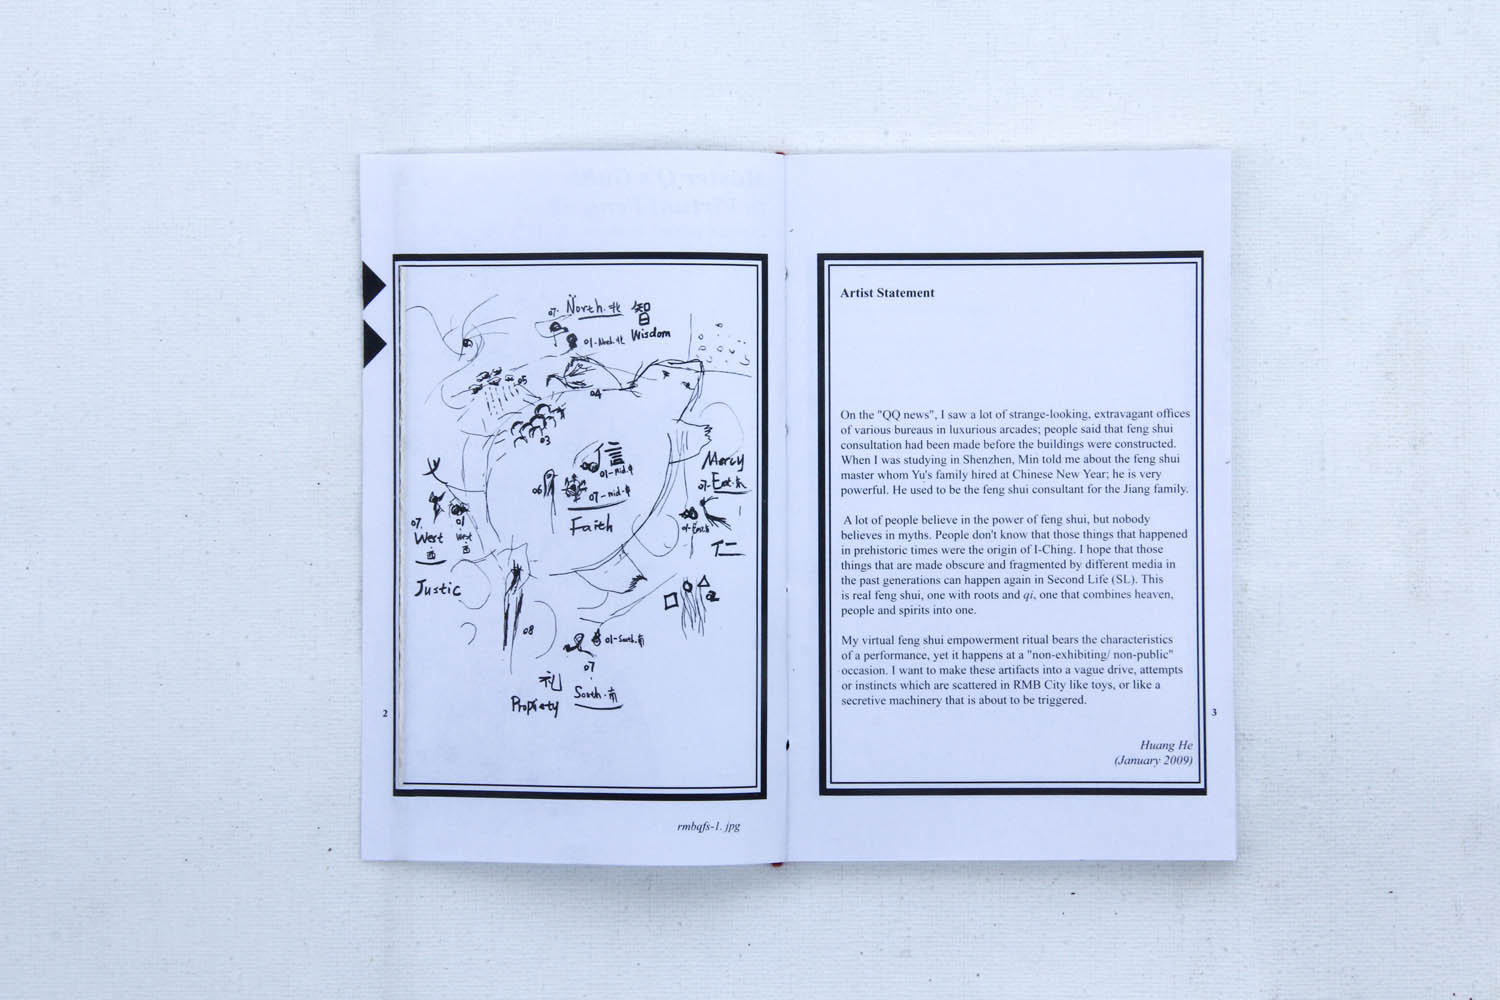 07. North.北 智
01-North.北 Wisdom
05
04
03
信
01-mid.中
06
07-mid.中
Faith
Mercy
07-East.东
01-East.东
仁
07. 01
West West
西 西
义
Justic
08
01-South.南
07
礼 South.南
Propiety
02
2
rmbqfs-1.jpg
Artist Statement
On the "QQ news", I saw a lot of strange-looking, extravagant offices
of various bureaus in luxurious arcades; people said that feng shui
consultation had been made before the buildings were constructed.
When I was studying in Shenzhen, Min told me about the feng shui
master whom Yu's family hired at Chinese New Year; he is very
powerful. He used to be the feng shui consultant for the Jiang family.
A lot of people believe in the power of feng shui, but nobody
believes in myths. People don't know that those things that happened
in prehistoric times were the origin of I-Ching. I hope that those
things that are made obscure and fragmented by different media in
the past generations can happen again in Second Life (SL). This
is real feng shui, one with roots and qi, one that combines heaven,
people and spirits into one.
My virtual feng shui empowerment ritual bears the characteristics
of a performance, yet it happens at a "non-exhibiting/ non-public"
occasion. I want to make these artifacts into a vague drive, attempts
or instincts which are scattered in RMB City like toys, or like a
secretive machinery that is about to be triggered.
Huang He
(January 2009)
3